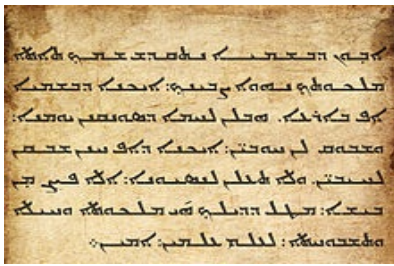 ܐܒܘܢ ܕܒܫܡܝܐ ܢܬܩܕܫ ܫܡܟ ܬܐܬܐ
ܡܠܟܘܬܟ ܢܗܘܐ ܨܒܝܢܟ: ܐܝܟܢܐ ܕܒܫܡܝܐ
ܐܦ ܒܐܪܥܐ. ܗܒ ܠܢ ܠܚܡܐ ܕܣܘܢܩܢܢ ܝܘܡܢܐ:
ܘܫܒܘܩ ܠܢ ܚܘܒܝ̈ܢ: ܐܝܟܢܐ ܕܐܦ ܚܢܢ ܫܒܩܢ
ܠܚܝܒܝ̈ܢ. ܘܠܐ ܬܥܠܢ ܠܢܣܝܘܢܐ: ܐܠܐ ܦܨܢ ܡܢ
ܒܝܫܐ: ܡܛܠ ܕܕܝܠܟ ܗ̄ܝ ܡܠܟܘܬܐ ܘܚܝܠܐ
ܘܬܫܒܘܚܬܐ: ܠܥܠܡ ܥܠܡܝܢ: ܐܡܝܢ܀